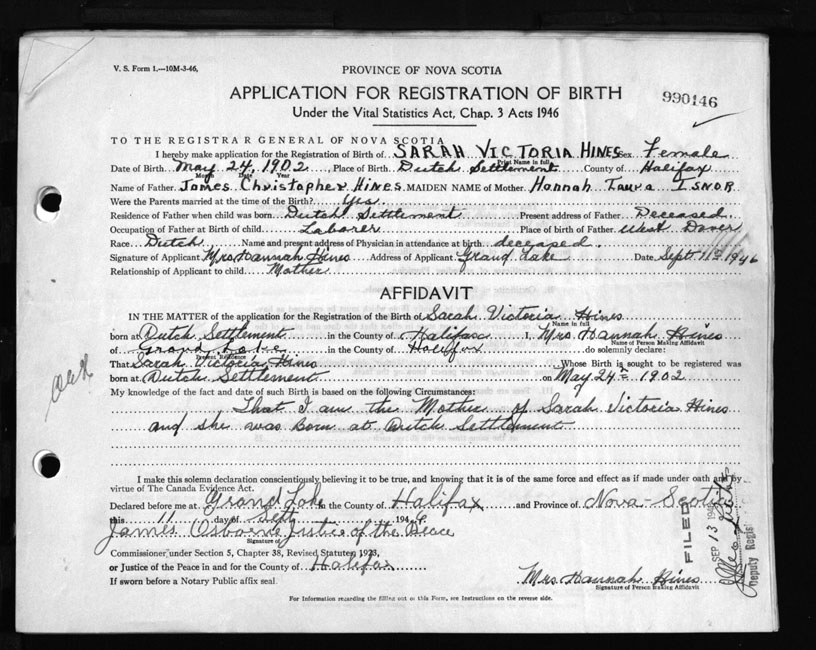 V. S. Form 1.—10M-3-46,
PROVINCE OF NOVA SCOTIA
APPLICATION FOR REGISTRATION OF BIRTH
990146
Under the Vital Statistics Act, Chap. 3 Acts 1946
TO THE REGISTRAR GENERAL OF NOVA SCOTIA
I hereby make application for the Registration of Birth of SARAH VICTORIA HINES Sex Female
Print Name in full
Date of Birth May 24, 1902 Place of Birth Dutch Settlement County of Halifax
Month Date Year
Name of Father James Christopher Hines MAIDEN NAME of Mother Hannah Laura ISNOR
Were the Parents married at the time of the Birth? Yes.
Residence of Father when child was born Dutch Settlement Present address of Father Deceased
Occupation of Father at Birth of child Laborer Place of birth of Father West Dover
Race Dutch Name and present address of Physician in attendance at birth deceased.
Signature of Applicant Mrs Hannah Hines Address of Applicant Grand Lake Date Sept 11th 1946
Relationship of Applicant to child Mother
AFFIDAVIT
IN THE MATTER of the application for the Registration of the Birth of Sarah Victoria Hines
Name in full
born at Dutch Settlement in the County of Halifax I, Mrs Hannah Hines
Name of Person Making Affidavit
of Grand Lake in the County of Halifax do solemnly declare:
Present Residence
That Sarah Victoria Hines Whose Birth is sought to be registered was
born at Dutch Settlement on May 24th 1902
My knowledge of the fact and date of such Birth is based on the following Circumstances:
That I am the Mother of Sarah Victoria Hines
and she was Born at Dutch Settlement
I make this solemn declaration conscientiously believing it to be true, and knowing that it is of the same force and effect as if made under oath and by
virtue of The Canada Evidence Act.
Declared before me at Grand Lake in the County of Halifax and Province of Nova-Scotia
this 11 day of Sept 1946
James Osborne Justice of the Peace
Signature of
Commissioner under Section 5, Chapter 38, Revised Statutes, 1923,
or Justice of the Peace in and for the County of Halifax
If sworn before a Notary Public affix seal.
Mrs. Hannah Hines
Signature of Person Making Affidavit
FILED
SEP 13
Deputy Regis
For Information regarding the filling out of this Form, see Instructions on the reverse side.